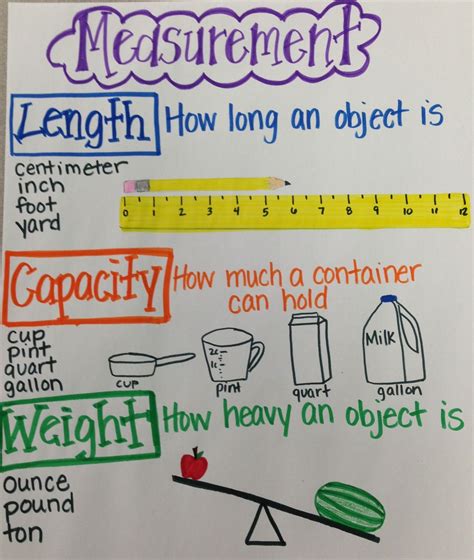 Measurement
Length How long an object is
centimeter
inch
foot
yard
0 1 2 3 4 5 6 7 8 9 10 11 12
Capacity How much a container
can hold
cup
pint
quart
gallon
2c
1c
Milk
cup
pint
quart
gallon
Weight How heavy an object is
ounce
pound
ton